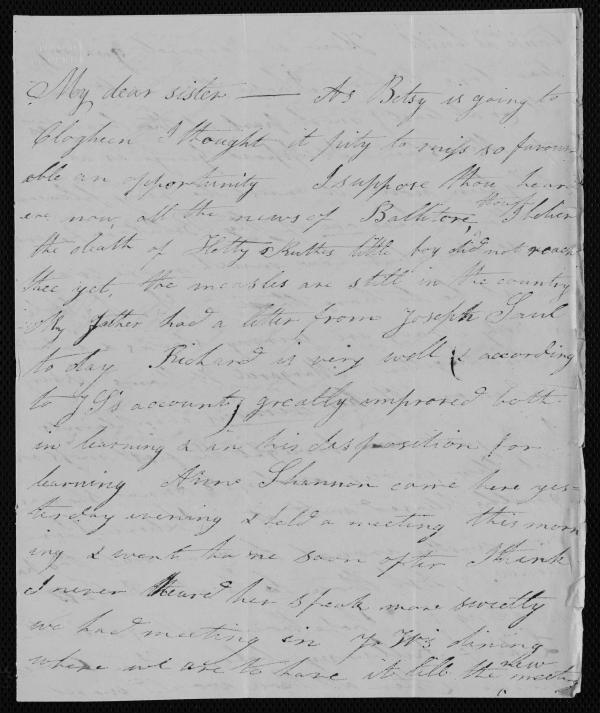 My dear sister — As Betsy is going to
Clogheen I thought it pity to miss so favour-
able an opportunity I suppose thou heard
ere now all the news of Ballitore, tho'
the death of Hetty & Ruths little boy did not reach
thee yet, the measles are still in the country
My father had a letter from Joseph Saul
to day Richard is very well & according
to JS's account greatly improved both
in learning & in his disposition for
learning Anne Shannon came here yes-
terday evening & held a meeting this morn
ing & went home soon after I think
I never heard her speak more sweetly
we had meeting in dining
where we are to have it till the new meeting